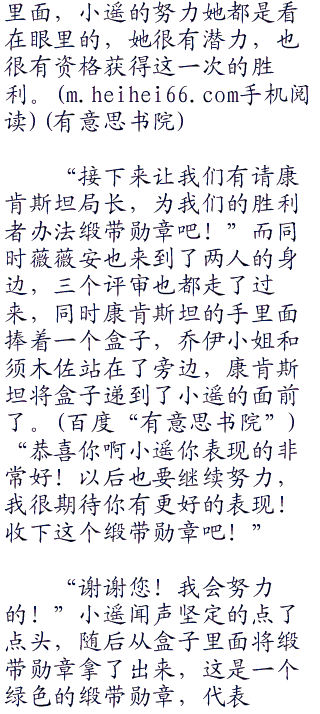 里面，小遥的努力她都是看
在眼里的，她很有潜力，也
很有资格获得这一次的胜
利。(m.heihei66.com手机阅
读)(有意思书院)
“接下来让我们有请康
肯斯坦局长，为我们的胜利
者办法缎带勋章吧！”而同
时薇薇安也来到了两人的身
边，三个评审也都走了过
来，同时康肯斯坦的手里面
捧着一个盒子，乔伊小姐和
须木佐站在了旁边，康肯斯
坦将盒子递到了小遥的面前
了。(百度“有意思书院”)
“恭喜你啊小遥你表现的非
常好！以后也要继续努力，
我很期待你有更好的表现！
收下这个缎带勋章吧！”
“谢谢您！我会努力
的！”小遥闻声坚定的点了
点头，随后从盒子里面将缎
带勋章拿了出来，这是一个
绿色的缎带勋章，代表